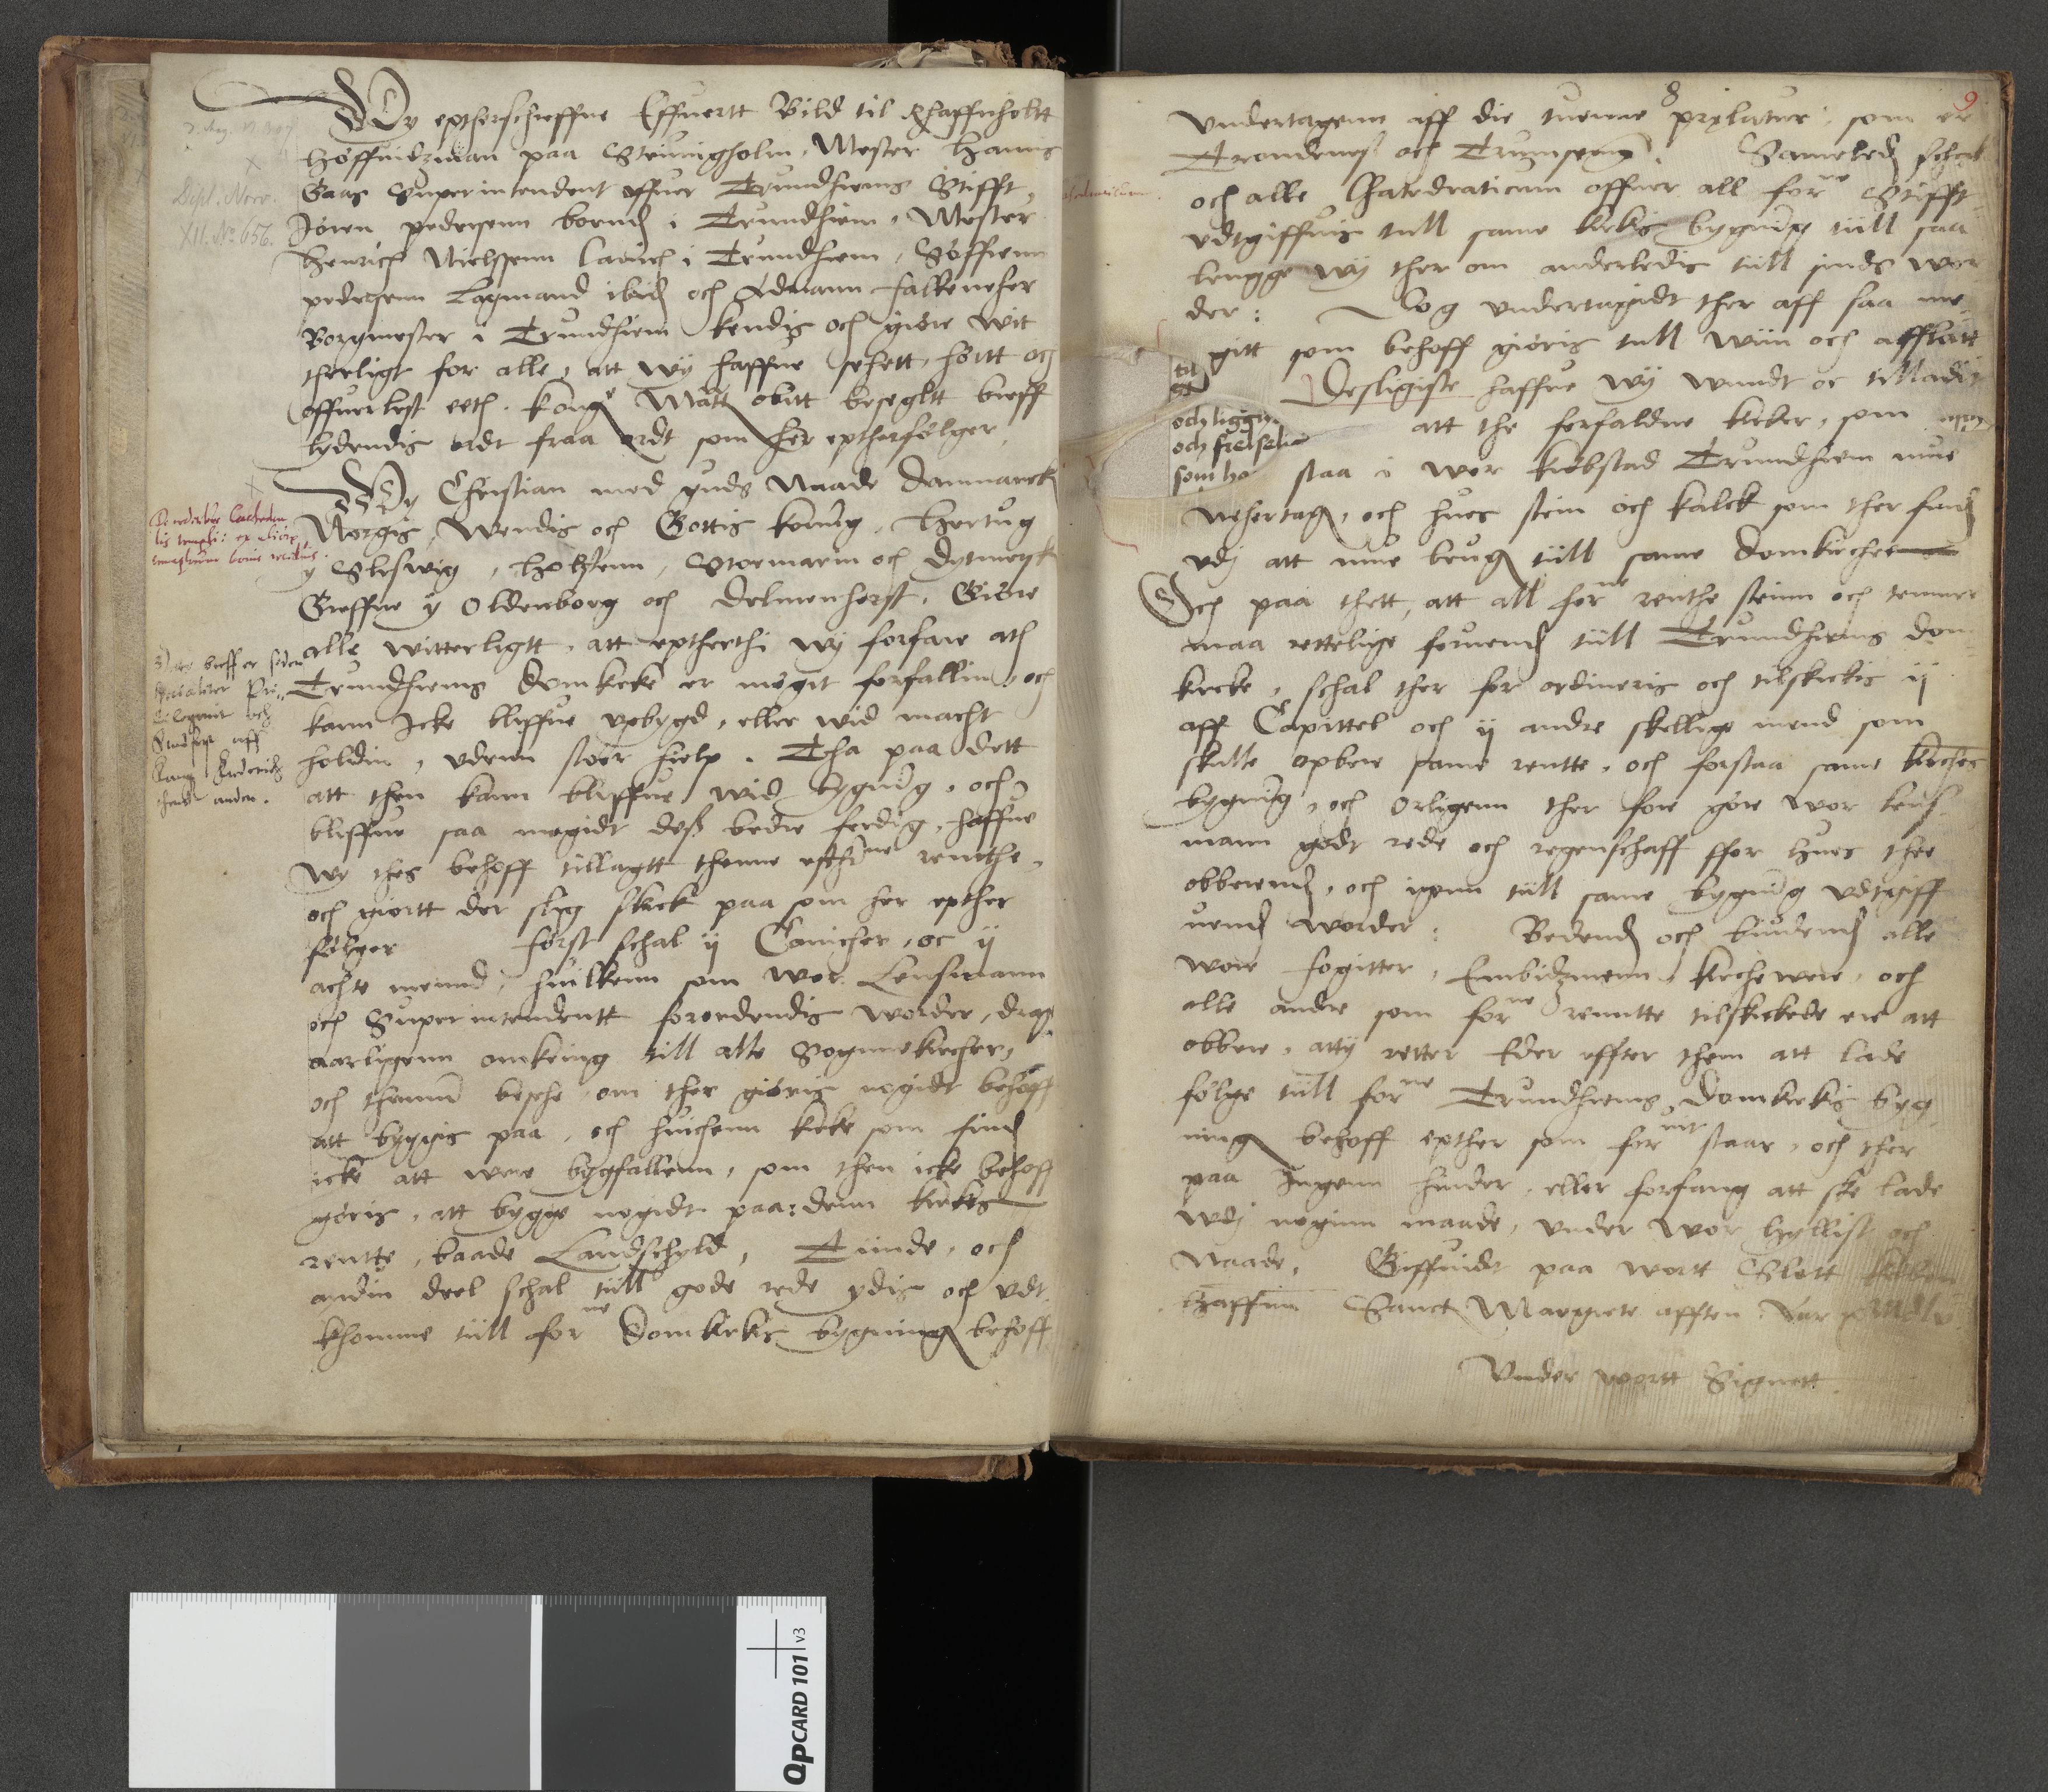 Wy eptherschreffne Effuertt Bild til Rhaffnholtt
Høffuidzman paa Steuingholm, Mester Hanns
Gaas Superintendent offuer Trundhiems Stifft,
Jören pedersenn i Trundhiem, Mester
Henrich Nielssenn i Trundhiem, Söffrenn
pedersenn Lagmand ibid och Admann Falkeneher
Borgmester i Trundhiem kendis och giöre wit
therligt for alle, att wij haffue sehett, hörtt och
offuerlest eth. Kong Matt obitt besegltt breff
lydendis ordt fraa ordt som her eptherfölger,
Wy Christian med guds Naade Danmarck
Norgis, Wendis och Gottis koning, Hertug
y Sleswig, Holstenn, Stormarin och Dytmersk
Greffue y Oldenborg och Delmenhorst, Giöre
alle witterligtt, att eptherthi wij forfare ath
Trundhiems domkirke er mögit forfallin, och
kann Icke bliffue vpbygd, eller wid macht
holdin, vdenn stoer hielp. Tha paa dett
att then kann bliffue wid bygnīg, och
bliffue saa megidt deß bedre ferdig, haffue
wy thes behoff tillagtt thenne efthrne renthe,
och giortt der slyg skick paa som her epther
fölger först schal ij Canicher, oc ij
achte mennd, huilkenn som wor Lensmann
och Superintendentt forordendis worder, drage
aarligenn omkring till alle Sognnekircher,
och thennū besehe, om ther giöris nogidt behoff
att byggis paa, och huichenn kirke som find
icke att were bygfallenn, som then icke behoff
göris, att bygge nogidt paa: denn kirkes
rentte, baade Landschyld, Tiinde, och
andin deel schal till gode rede ydis och vdt
khomme till forne domkirkis bygning behoff
Dipl. Norv.
XII. No 656.
8
9
vndertagenn aff die tuenne prelaturer: som er
Trondenes och Trumsenn. Sameledis schal
och alle Chatedraticum offuer all forne Stifft
vdtgiffuis till same kirkis bygnīg till saa
lengge wij ther om anderledis till sinds wor
der: Og vndertagidt ther aff saa me
gitt som behoff giöris till Wiin och afflatt
Desligiste haffue Wij wundt oc tilladit
att the forfaldne kirker, som
staa i wor kiöbstad Trundhiem mue
nehertages, och hues stein och kalck som ther finds
vdj att mue brug till same domkirchee
Och paa thett, att all forne renthe steinn och temmer
maa rettelige forwends till Trundhiems dom
kircke, schal ther for ordineris och tilskickis ij
aff Capittel och ij andre skellige mend som
skulle opbere same rentte, och forstaa same kirches
bygnīg, och Orligenn ther fore göre wor lens
mann godt rede och regenschaff ffor hues thee
obberends, och igenn till same bygnīg vdtgiff
uends worder: Bedends och biudends alle
wore fogitter, Embidzmenn, kirchewere, och
alle andre som forne renntte tilskickede ere att
obbere, attij retter Eder effter them att lade
fölge till forne Trundhiems Domkirkis byg
ning behoff epther som foruit staar, och ther
paa Ingenn hinder, eller forfang att ske lade
Wdj noginn maade, vnder wor hyllist och
Naade, Giffuidt paa wortt Slott
Haffnn Sanct Margrete afften: Aar
Vnder wortt Signett
til
och ligg
och frelse
som ha
QpCARD 101 v3